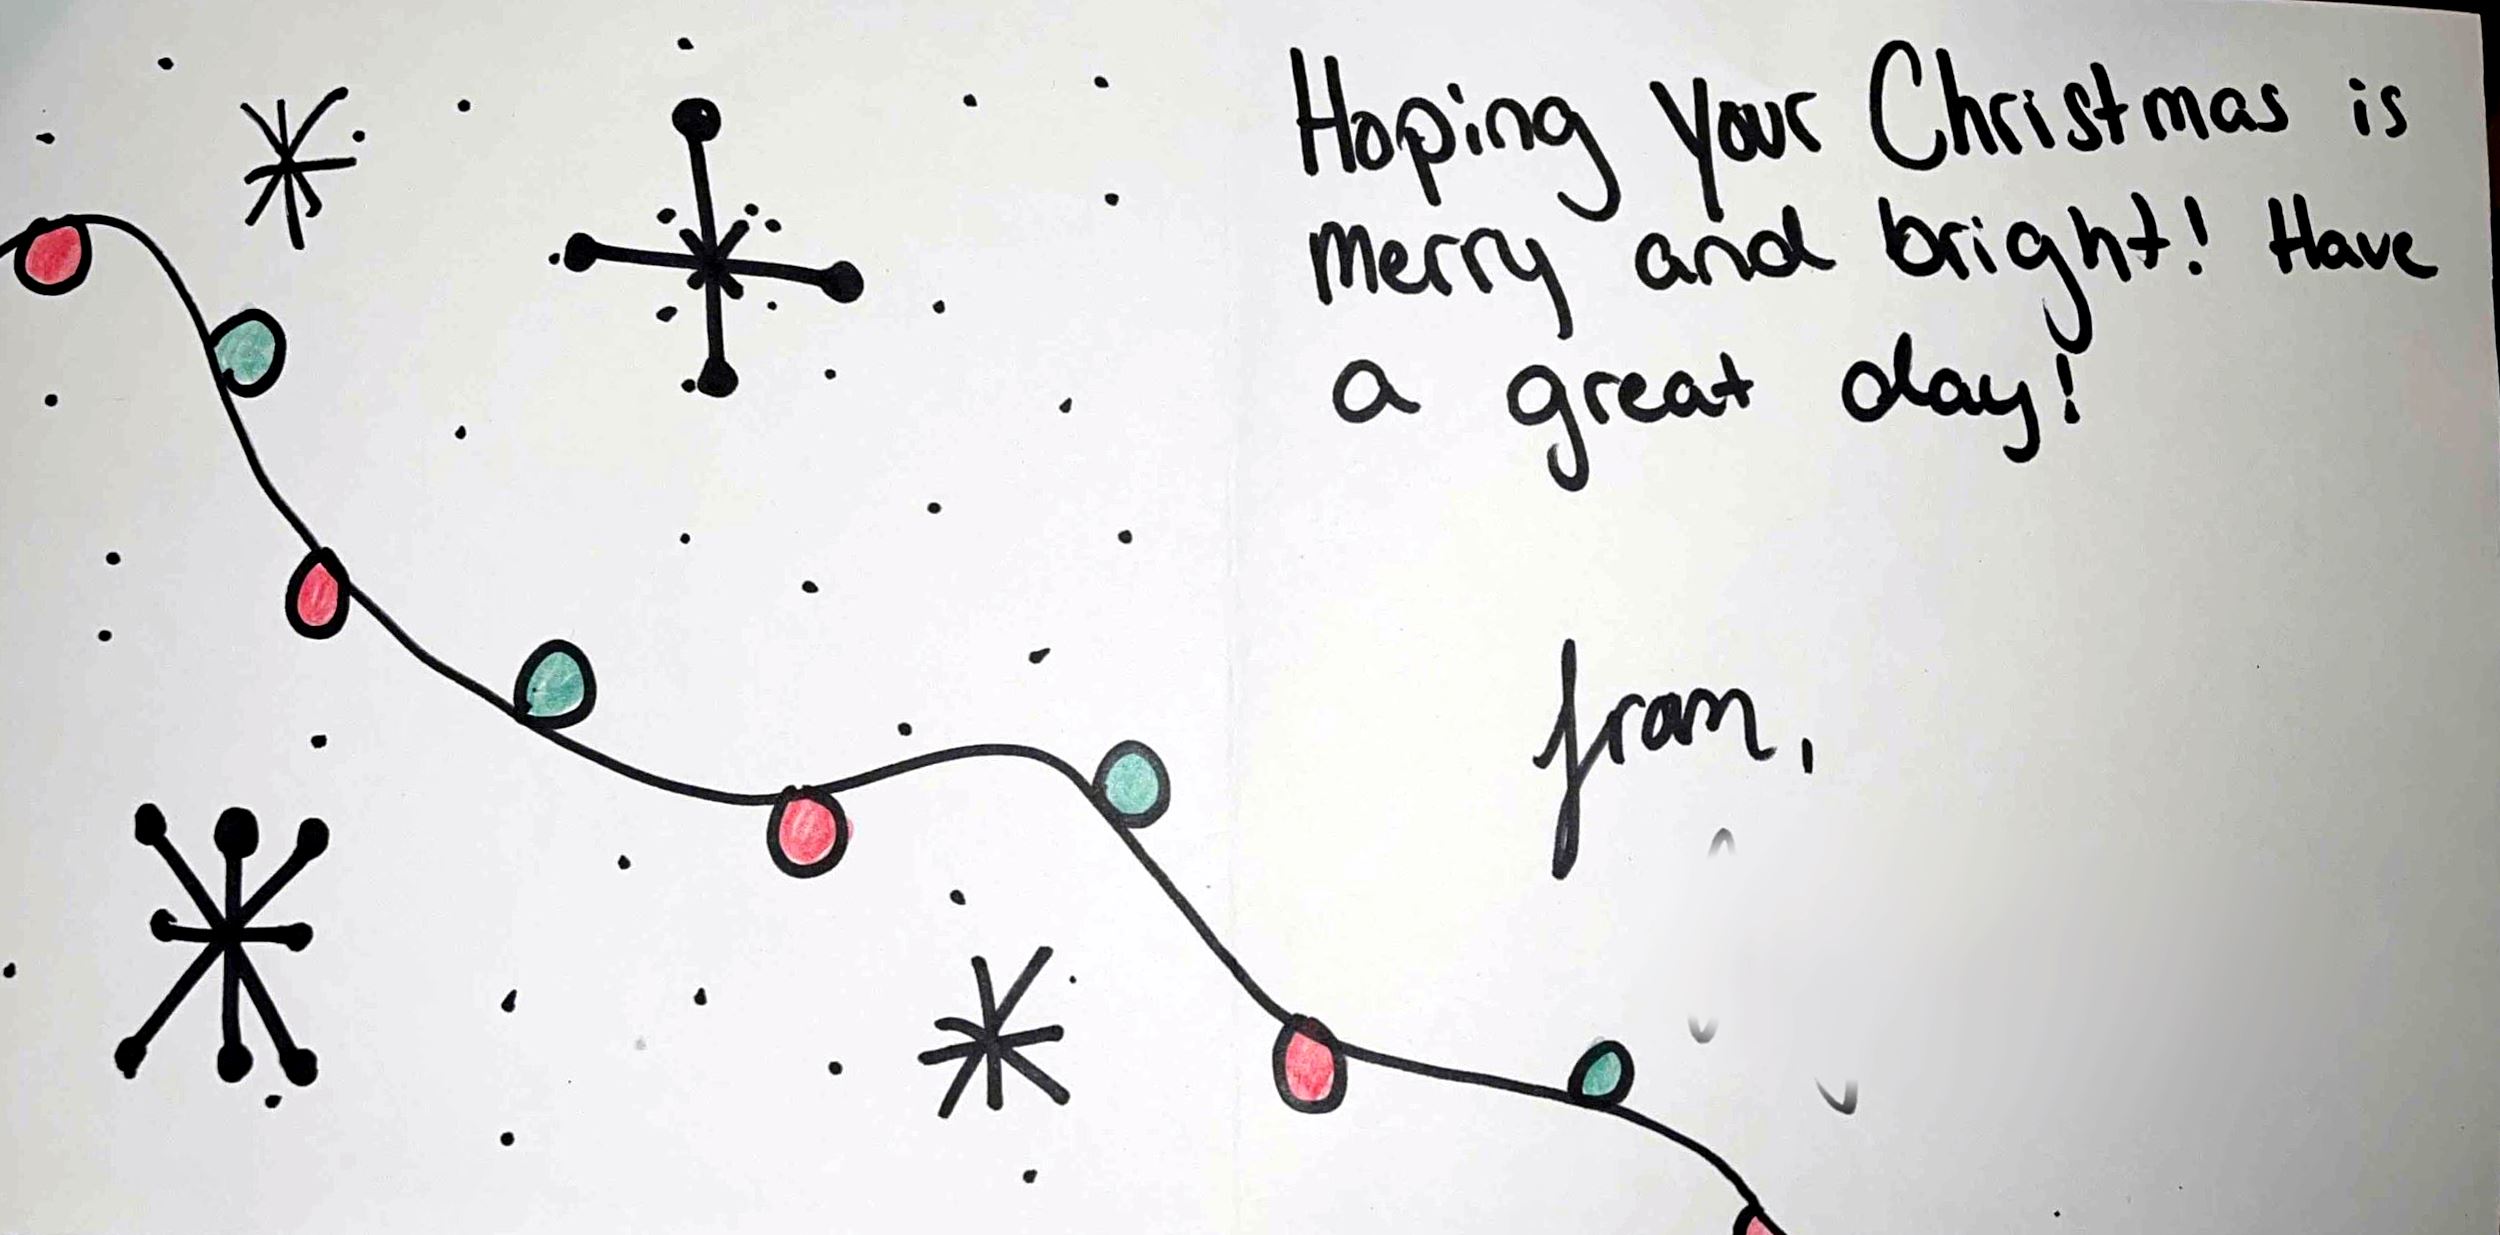 Hoping Your Christmas is
merry and bright! Have
a great day!
from,